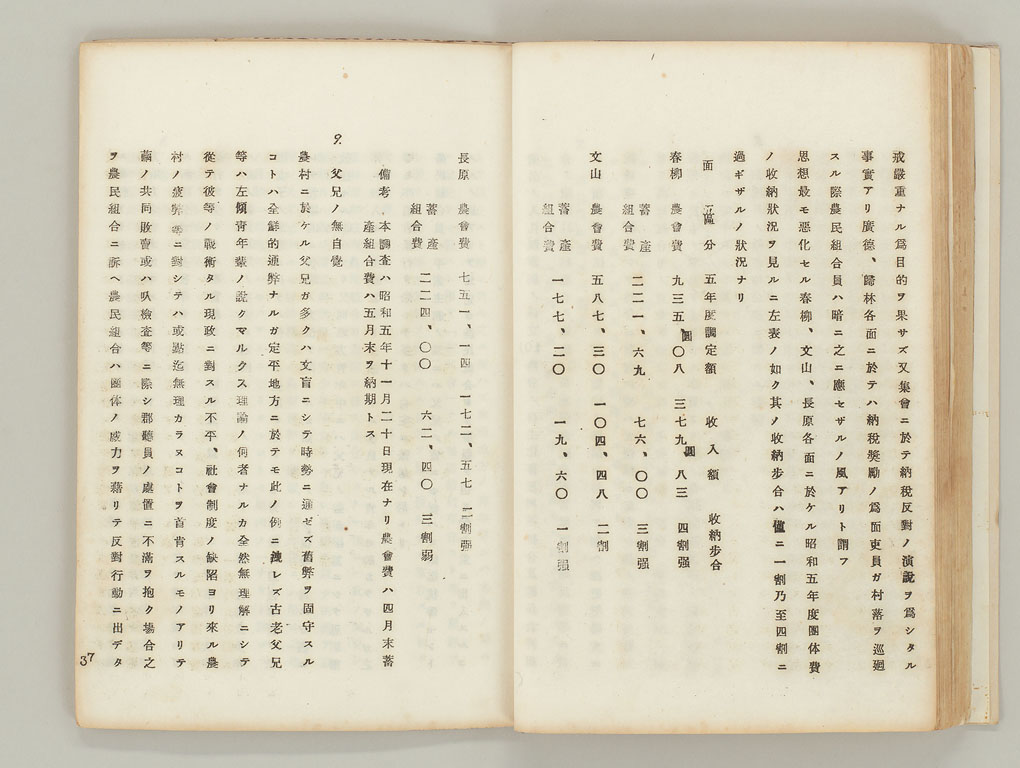 戒嚴重ナル爲目的ヲ果サズ又集會ニ於テ納稅反對ノ演說ヲ爲シタル
事實アリ廣德、歸林各面ニ於テハ納稅獎勵ノ爲面吏員ガ村落ヲ巡廻
スル際農民組合員ハ暗ニ之ニ應セザルノ風アリト謂フ
思想最モ惡化セル春柳、文山、長原各面ニ於ケル昭和五年度團体費
ノ收納狀況ヲ見ルニ左表ノ如ク其ノ收納步合ハ僅ニ一割乃至四割ニ
過ギザルノ狀況ナリ
面 區分 五年度調定額 收入額 收納步合
春柳 農會費 九三五圓〇八 三七九圓八三 四割强
畜產組合費 二二一、六九 七六、〇〇 三割强
文山 農會費 五八七、三〇 一〇四、四八 二割
畜產組合費 一七七、二〇 一九、六〇 一割强
長原 農會費 七五一、一四 一七二、五七 二割强
畜產組合費 二二四、〇〇 六二、四〇 三割弱
備考 本調査ハ昭和五年十一月二十日現在ナリ農會費ハ四月末畜
產組合費ハ五月末ヲ納期トス
9. 父兄ノ無自覺
農村ニ於ケル父兄ガ多クハ文盲ニシテ時勢ニ通ゼズ舊弊ヲ固守スル
コトハ全鮮的通弊ナルガ定平地方ニ於テモ此ノ例ニ洩レズ古老父兄
等ハ左傾靑年輩ノ說クマルクス理論ノ何者ナルカ全然無理解ニシテ
從テ彼等ノ戰術タル現政ニ對スル不平、社會制度ノ缺陷ヨリ來ル農
村ノ疲弊等ニ對シテハ或點迄無理カラヌコトヲ首肯スルモノアリテ
繭ノ共同販賣或ハ叺檢査等ニ際シ郡廳員ノ處置ニ不滿ヲ抱ク場合之
ヲ農民組合ニ訴ヘ農民組合ハ團体ノ威力ヲ藉リテ反對行動ニ出デタ
37